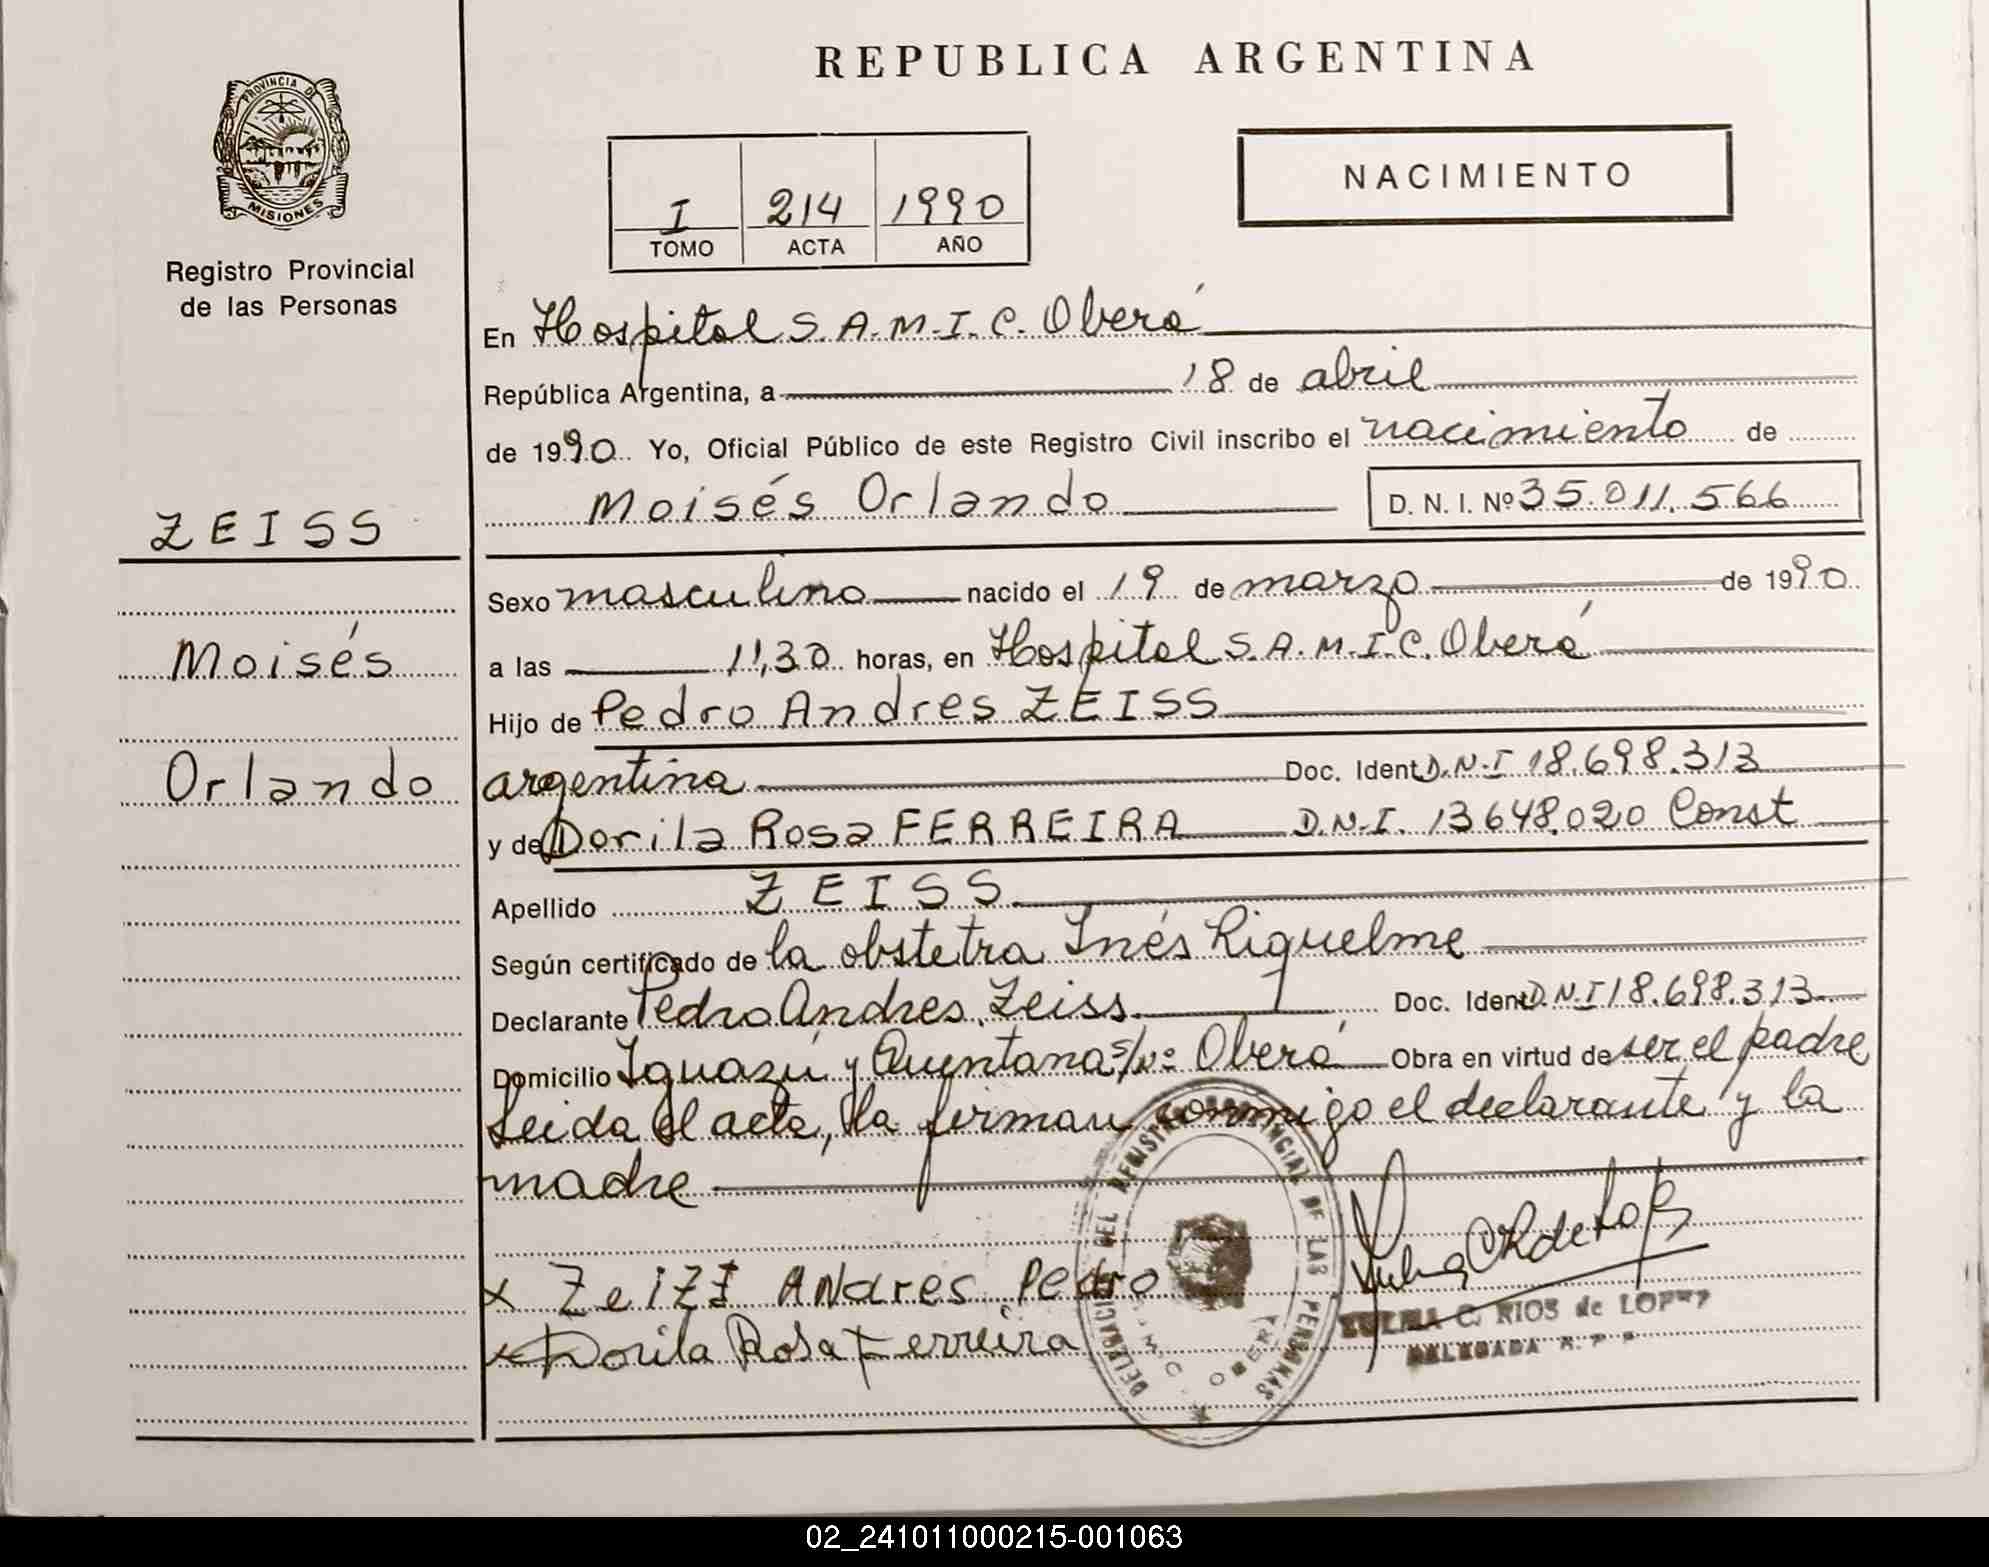 REPUBLICA ARGENTINA
PROVINCIA DE
MISIONES
Registro Provincial
de las Personas
I 214 1990
TOMO ACTA AÑO
NACIMIENTO
En Hospital S.A.M.I.C. Oberá
República Argentina, a 18 de abril
de 1990 Yo, Oficial Público de este Registro Civil inscribo el nacimiento de
Moisés Orlando D. N. I. Nº 35.011.566
ZEISS
Moisés
Orlando
Sexo masculino nacido el 19 de marzo de 1990
a las 11,30 horas, en Hospital S.A.M.I.C. Oberá
Hijo de Pedro Andres ZEISS
argentina Doc. Ident D.N.I 18.698.313
y de Dorila Rosa FERREIRA D.N.I. 13648.020 Const
Apellido ZEISS
Según certificado de la obstetra Inés Riquelme
Declarante Pedro Andres Zeiss Doc. Ident D.N.I 18.698.313
Domicilio Iguazú y Quintana s/nº Oberá Obra en virtud de ser el padre
Leida el acta, la firman conmigo el declarante y la
madre
x ZeiZZ ANdres Pedro
x Dorila Rosa Ferreira
DELEGACION DEL REGISTRO PROVINCIAL DE LAS PERSONAS
OBERA
ZULMA C. RIOS de LOPEZ
DELEGADA R.P.P.
02_241011000215-001063